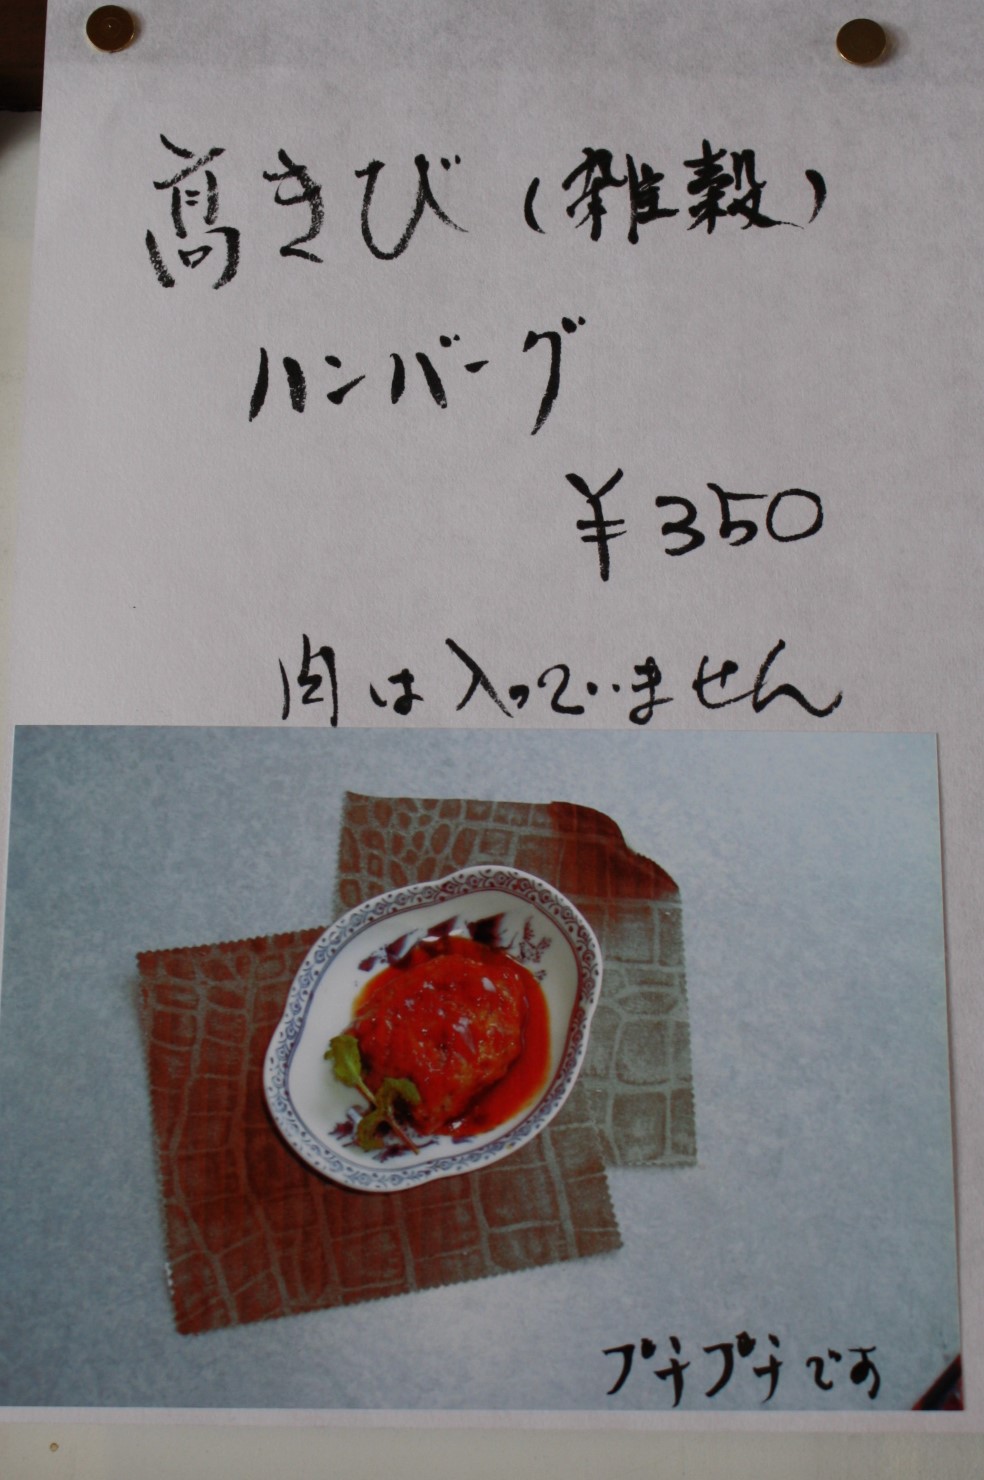 髙きび(雑穀)
ハンバーグ
¥350
肉は入っていません
プチプチです